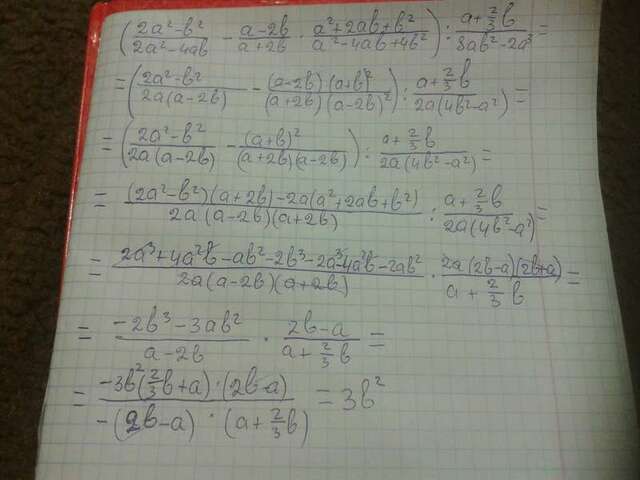 (2a²-b²/2a²-4ab - a-2b/a+2b · a²+2ab+b²/a²-4ab+4b²) : a+⅔b/8ab²-2a³ =
= (2a²-b²/2a(a-2b) - (a-2b)·(a+b)²/(a+2b)(a-2b)²) : a+⅔b/2a(4b²-a²) =
= (2a²-b²/2a(a-2b) - (a+b)²/(a+2b)(a-2b)) : a+⅔b/2a(4b²-a²) =
= (2a²-b²)(a+2b)-2a(a²+2ab+b²)/2a(a-2b)(a+2b) : a+⅔b/2a(4b²-a²) =
= 2a³+4a²b-ab²-2b³-2a³-4a²b-2ab²/2a(a-2b)(a+2b) · 2a(2b-a)(2b+a)/a+⅔b =
= -2b³-3ab²/a-2b · 2b-a/a+⅔b =
= -3b²(⅔b+a)·(2b-a)/-(2b-a)·(a+⅔b) = 3b²